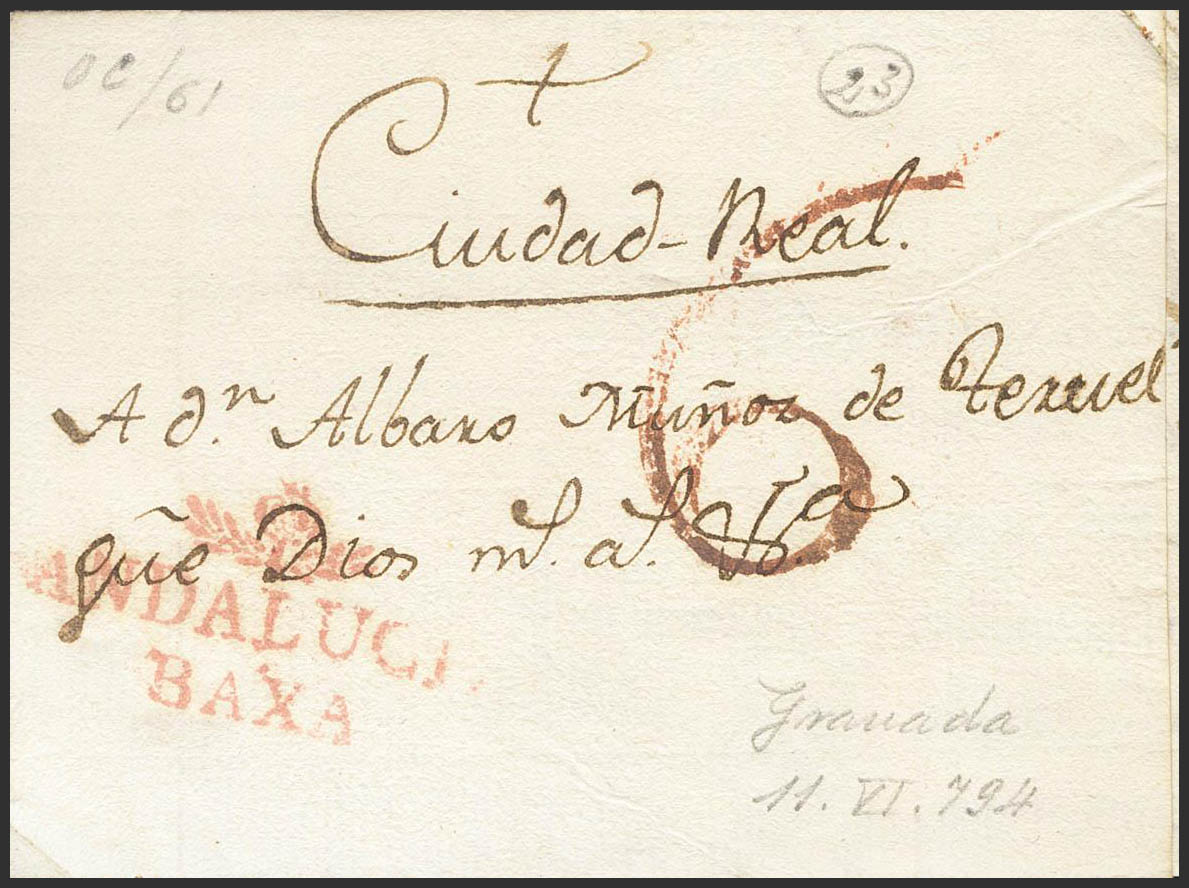 OC/61
23
Ciudad-Real.
6
A dn. Albaro Muñoz de Teruel
gu̅e Dios ms. as. Va
ANDALUCI
BAXA
Granada
11. VI. 794